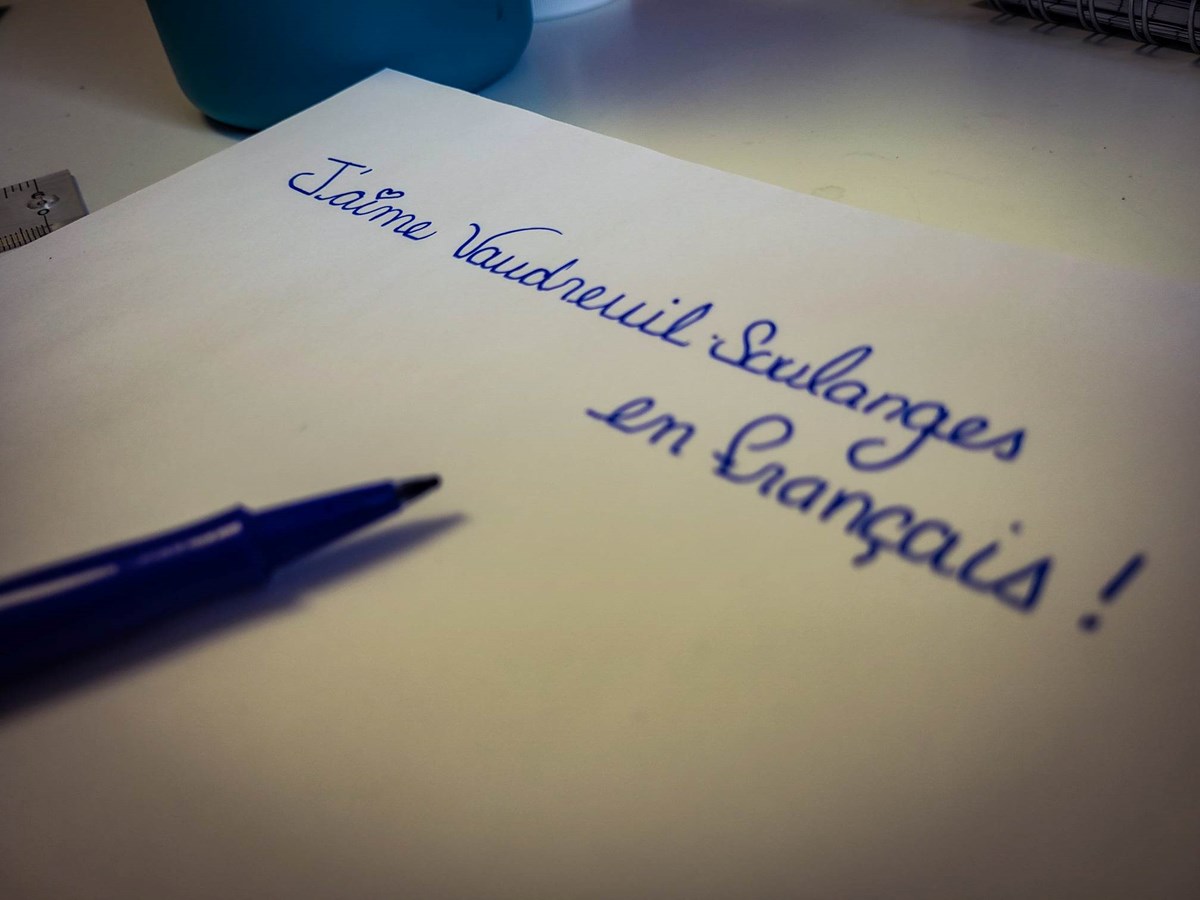 J'aime Vaudreuil-Soulanges
en français !